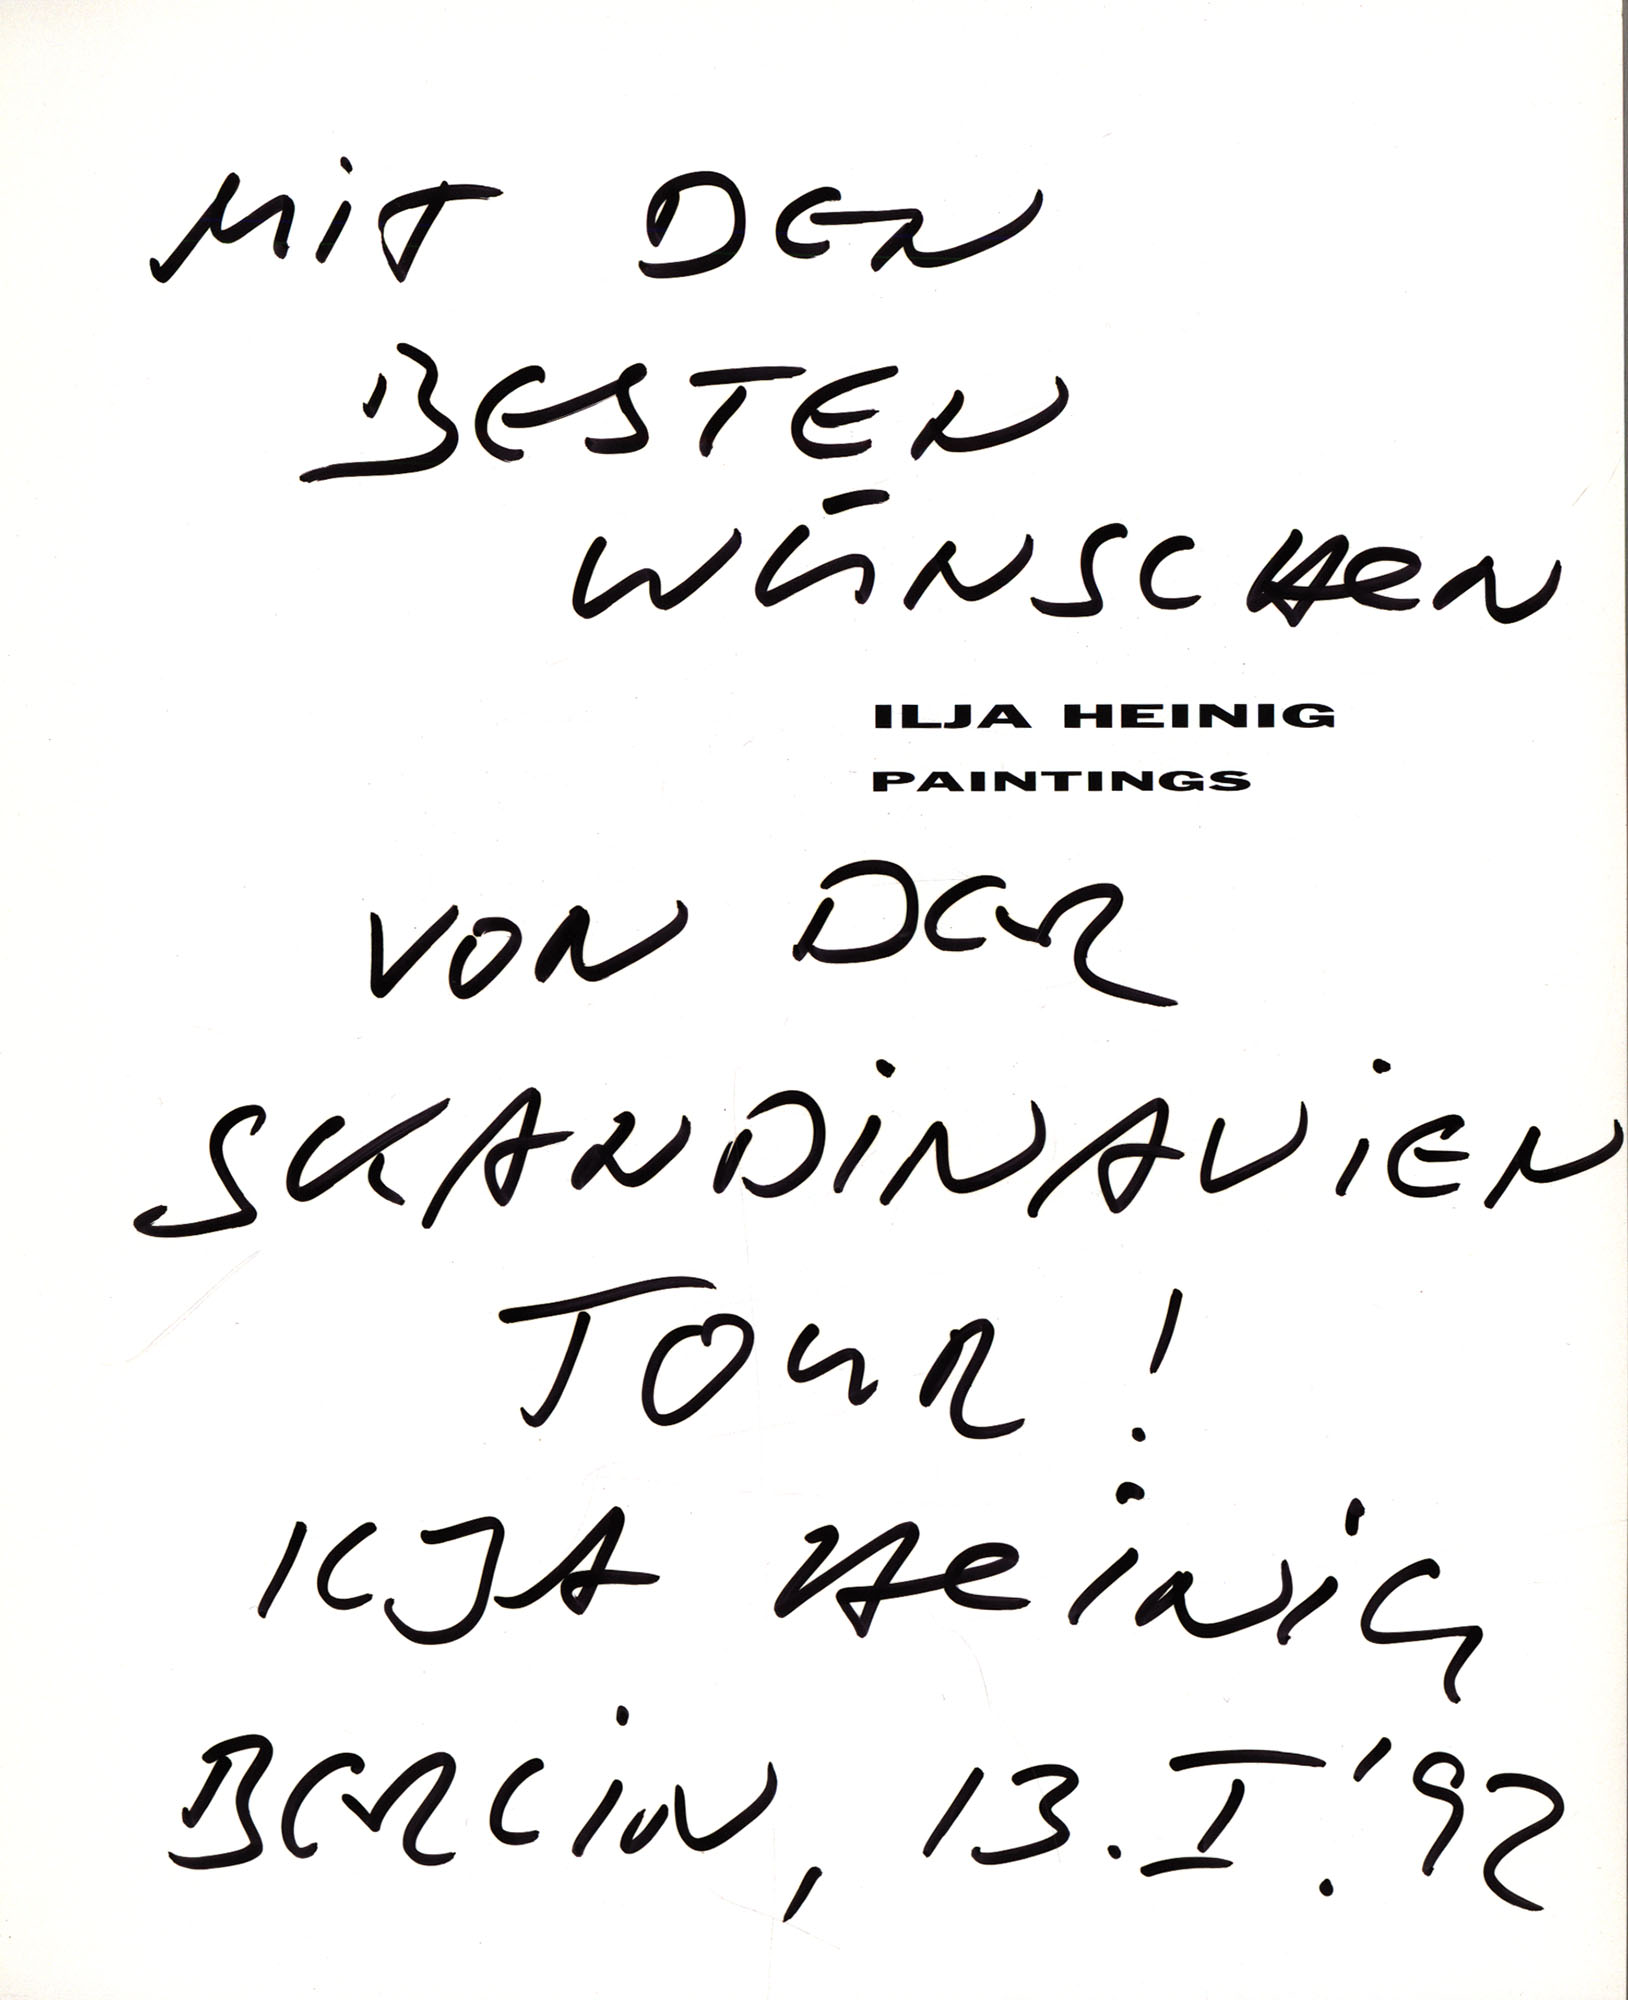 MIT DEN
BESTEN
WÜNSCHEN
ILJA HEINIG
PAINTINGS
VON DER
SKANDINAVIEN
TOUR!
ILJA HEINIG
BERLIN, 13.I.'92